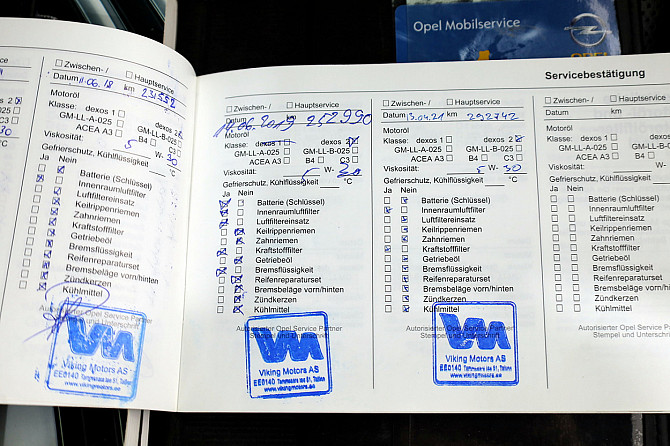 Opel Mobilservice
Servicebestätigung
Zwischen- / Hauptservice
Datum 11.06.18 km 231592
Motoröl
Klasse: dexos 1 dexos 2
GM-LL-A-025 GM-LL-B-025
ACEA A3 B4 C3
Viskosität: 5 W- 30
Gefrierschutz, Kühlflüssigkeit
°C
Ja Nein
Batterie (Schlüssel)
Innenraumluftfilter
Luftfiltereinsatz
Keilrippenriemen
Zahnriemen
Kraftstofffilter
Getriebeöl
Bremsflüssigkeit
Reifenreparaturset
Bremsbeläge vorn/hinten
Zündkerzen
Kühlmittel
Autorisierter Opel Service Partner
Stempel und Unterschrift
VM
Viking Motors AS
EE0140 Tammsaare tee 51, Tallinn
www.vikingmotors.ee
Zwischen- / Hauptservice
Datum 14.06.2019 km 252990
Motoröl
Klasse: dexos 1 dexos 2
GM-LL-A-025 GM-LL-B-025
ACEA A3 B4 C3
Viskosität: 5 W- 30
Gefrierschutz, Kühlflüssigkeit
°C
Ja Nein
Batterie (Schlüssel)
Innenraumluftfilter
Luftfiltereinsatz
Keilrippenriemen
Zahnriemen
Kraftstofffilter
Getriebeöl
Bremsflüssigkeit
Reifenreparaturset
Bremsbeläge vorn/hinten
Zündkerzen
Kühlmittel
Autorisierter Opel Service Partner
Stempel und Unterschrift
VM
Viking Motors AS
EE0140 Tammsaare tee 51, Tallinn
www.vikingmotors.ee
Zwischen- / Hauptservice
Datum 13.04.21 km 292742
Motoröl
Klasse: dexos 1 dexos 2
GM-LL-A-025 GM-LL-B-025
ACEA A3 B4 C3
Viskosität: 5 W- 30
Gefrierschutz, Kühlflüssigkeit
°C
Ja Nein
Batterie (Schlüssel)
Innenraumluftfilter
Luftfiltereinsatz
Keilrippenriemen
Zahnriemen
Kraftstofffilter
Getriebeöl
Bremsflüssigkeit
Reifenreparaturset
Bremsbeläge vorn/hinten
Zündkerzen
Kühlmittel
Autorisierter Opel Service Partner
Stempel und Unterschrift
VM
Viking Motors AS
EE0140 Tammsaare tee 51, Tallinn
www.vikingmotors.ee
Zwischen- / Hauptservice
Datum km
Motoröl
Klasse: dexos 1
GM-LL-A-025 GM-LL-B
ACEA A3 B4
Viskosität: W-
Gefrierschutz, Kühlflüssigkeit
Ja Nein
Batterie (Schlüssel)
Innenraumluftfilter
Luftfiltereinsatz
Keilrippenriemen
Zahnriemen
Kraftstofffilter
Getriebeöl
Bremsflüssigkeit
Reifenreparaturset
Bremsbeläge vorn/hint
Zündkerzen
Kühlmittel
Autorisierter Opel Service P
Stempel und Unterschri